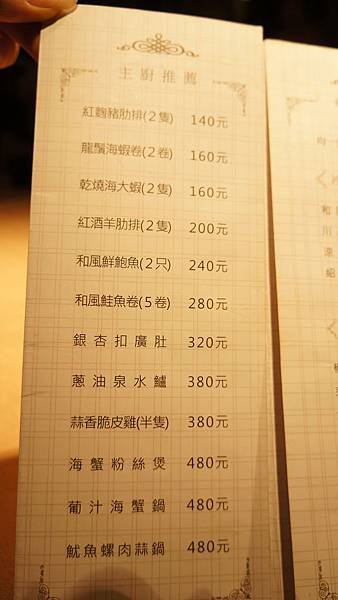 主廚推薦
紅麴豬肋排(2隻) 140元
龍鬚海蝦卷(2卷) 160元
乾燒海大蝦(2隻) 160元
紅酒羊肋排(2隻) 200元
和風鮮鮑魚(2只) 240元
和風鮭魚卷(5卷) 280元
銀杏扣廣肚 320元
蔥油泉水鱸 380元
蒜香脆皮雞(半隻) 380元
海蟹粉絲煲 480元
葡汁海蟹鍋 480元
魷魚螺肉蒜鍋 480元
和
川